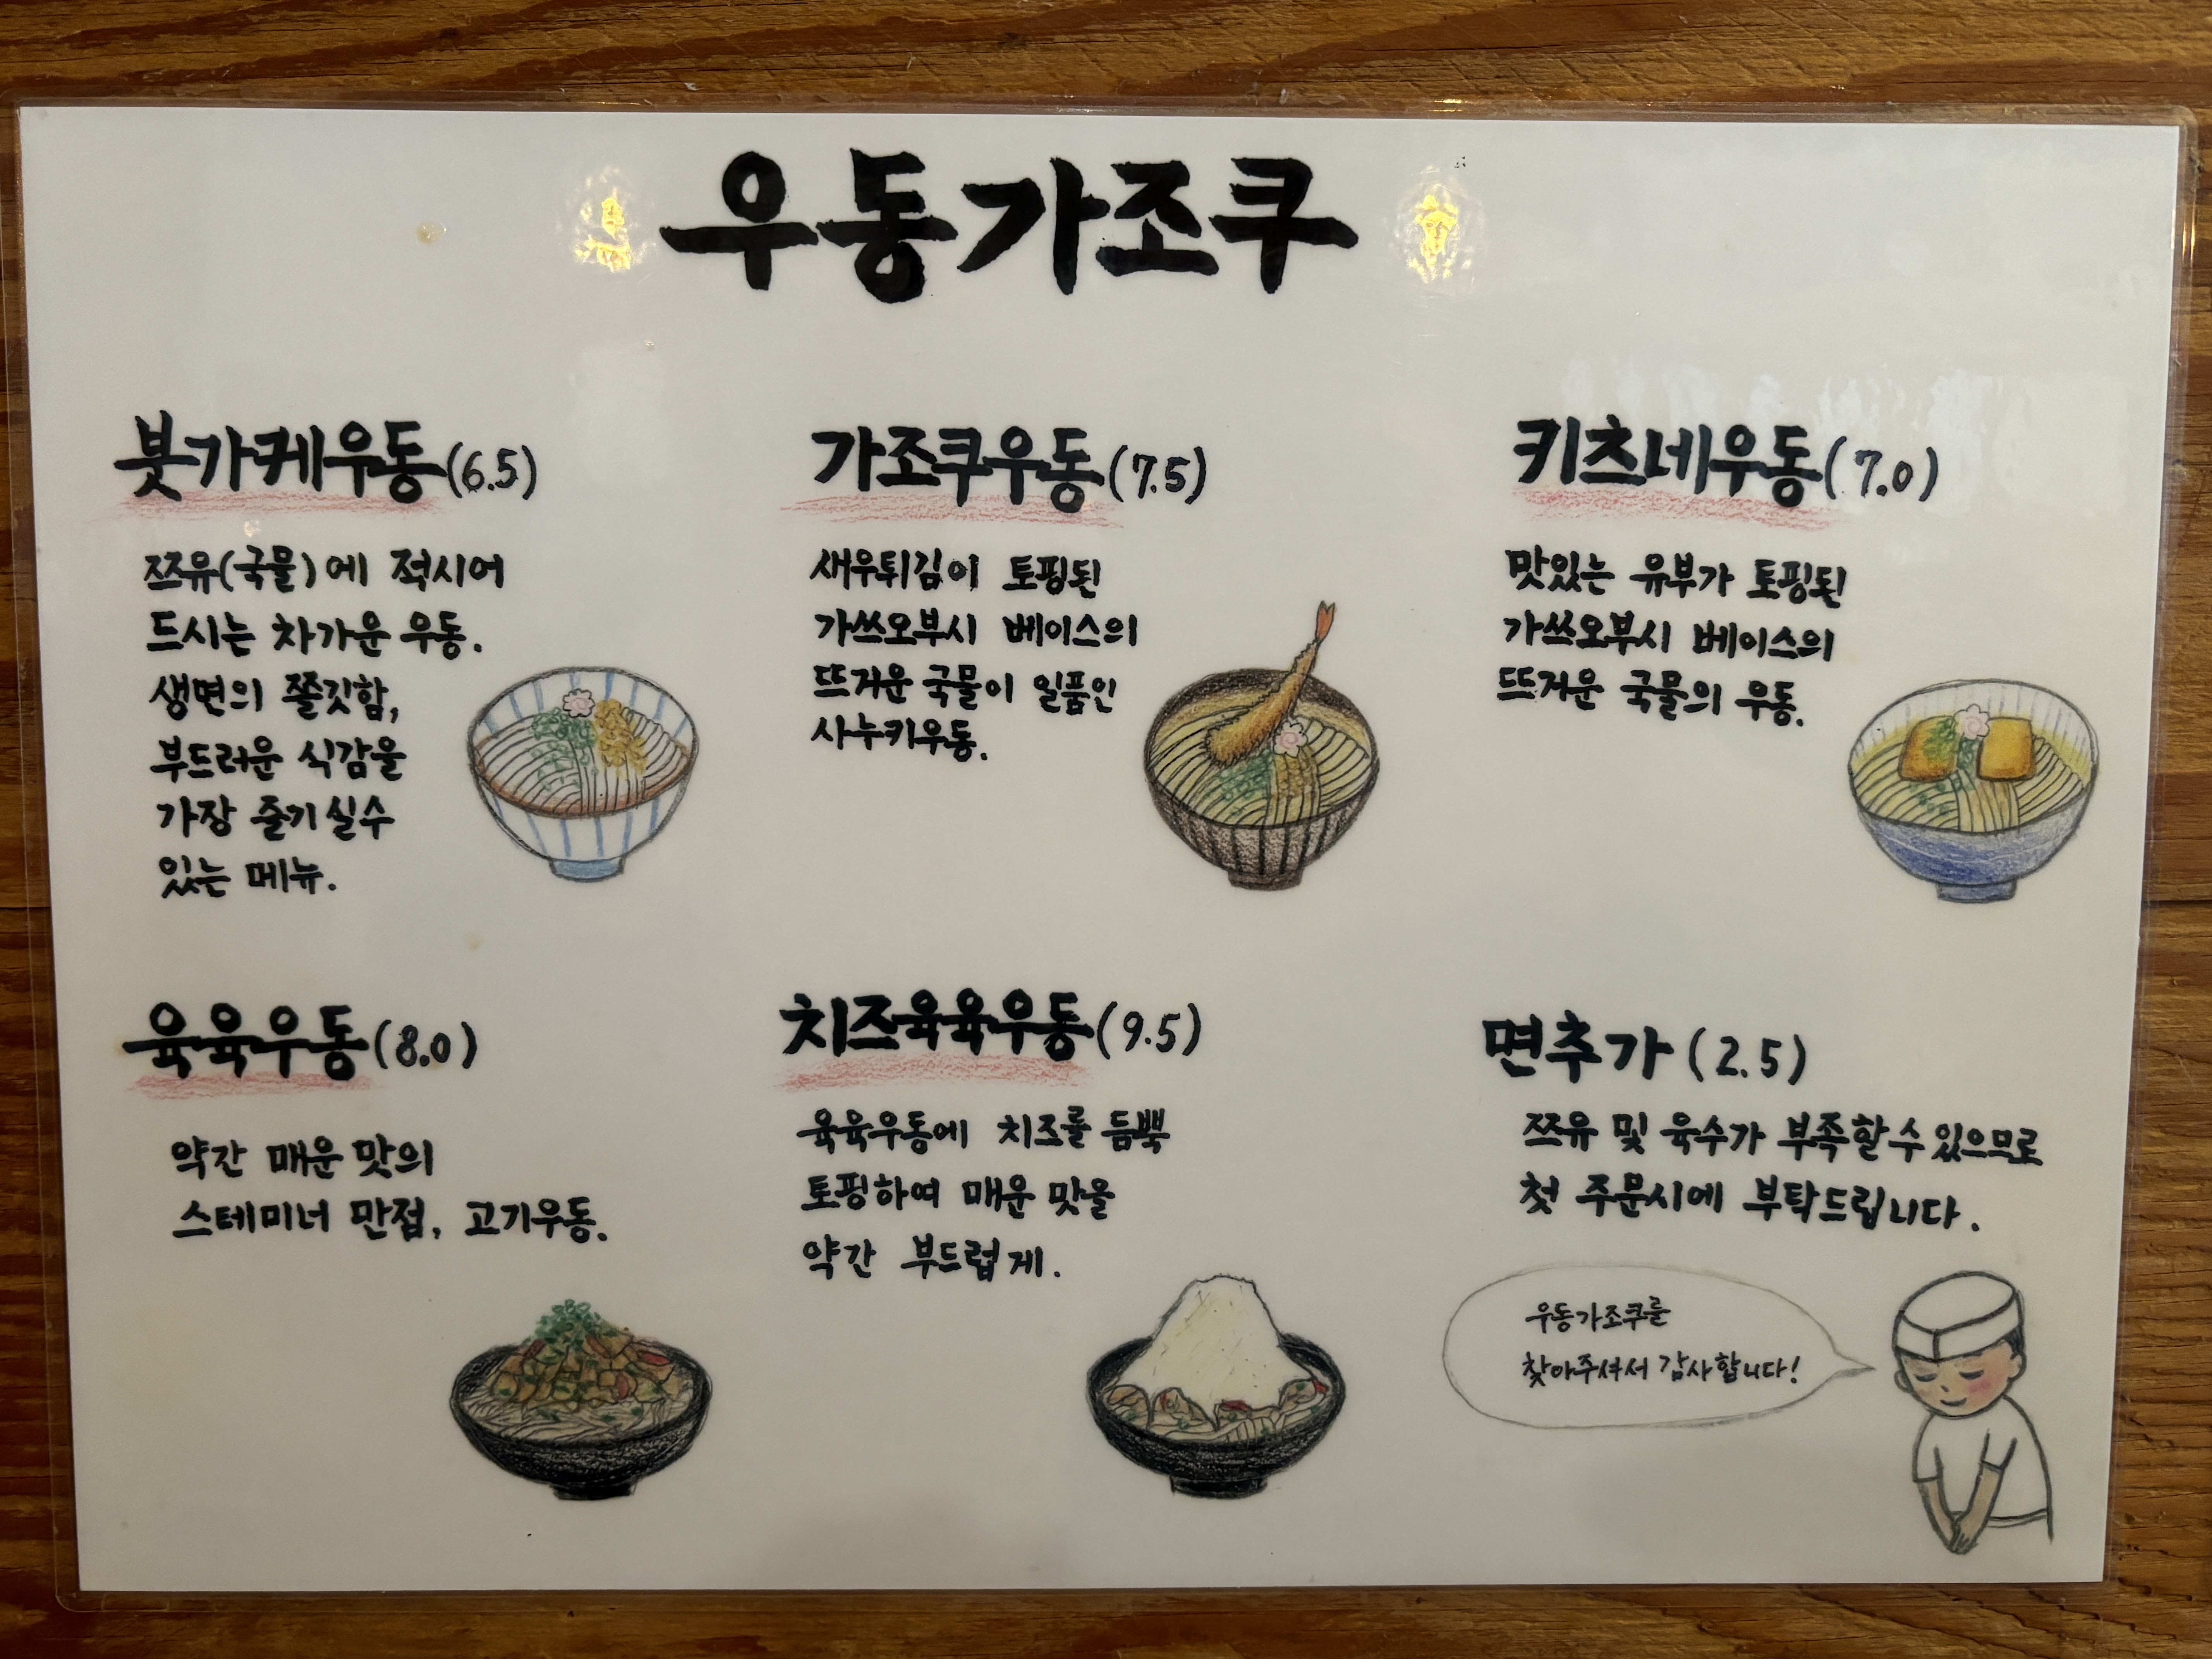 우동가조쿠
붓가케우동(6.5)
쯔유(국물)에 적시어
드시는 차가운 우동.
생면의 쫄깃함,
부드러운 식감을
가장 즐기실수
있는 메뉴.
가조쿠우동(7.5)
새우튀김이 토핑된
가쓰오부시 베이스의
뜨거운 국물이 일품인
사누키우동.
키츠네우동(7.0)
맛있는 유부가 토핑된
가쓰오부시 베이스의
뜨거운 국물의 우동.
육육우동(8.0)
약간 매운 맛의
스테미너 만점, 고기우동.
치즈육육우동(9.5)
육육우동에 치즈를 듬뿍
토핑하여 매운 맛을
약간 부드럽게.
면추가(2.5)
쯔유 및 육수가 부족할수 있으므로
첫 주문시에 부탁드립니다.
우동가조쿠를
찾아주셔서 감사합니다!